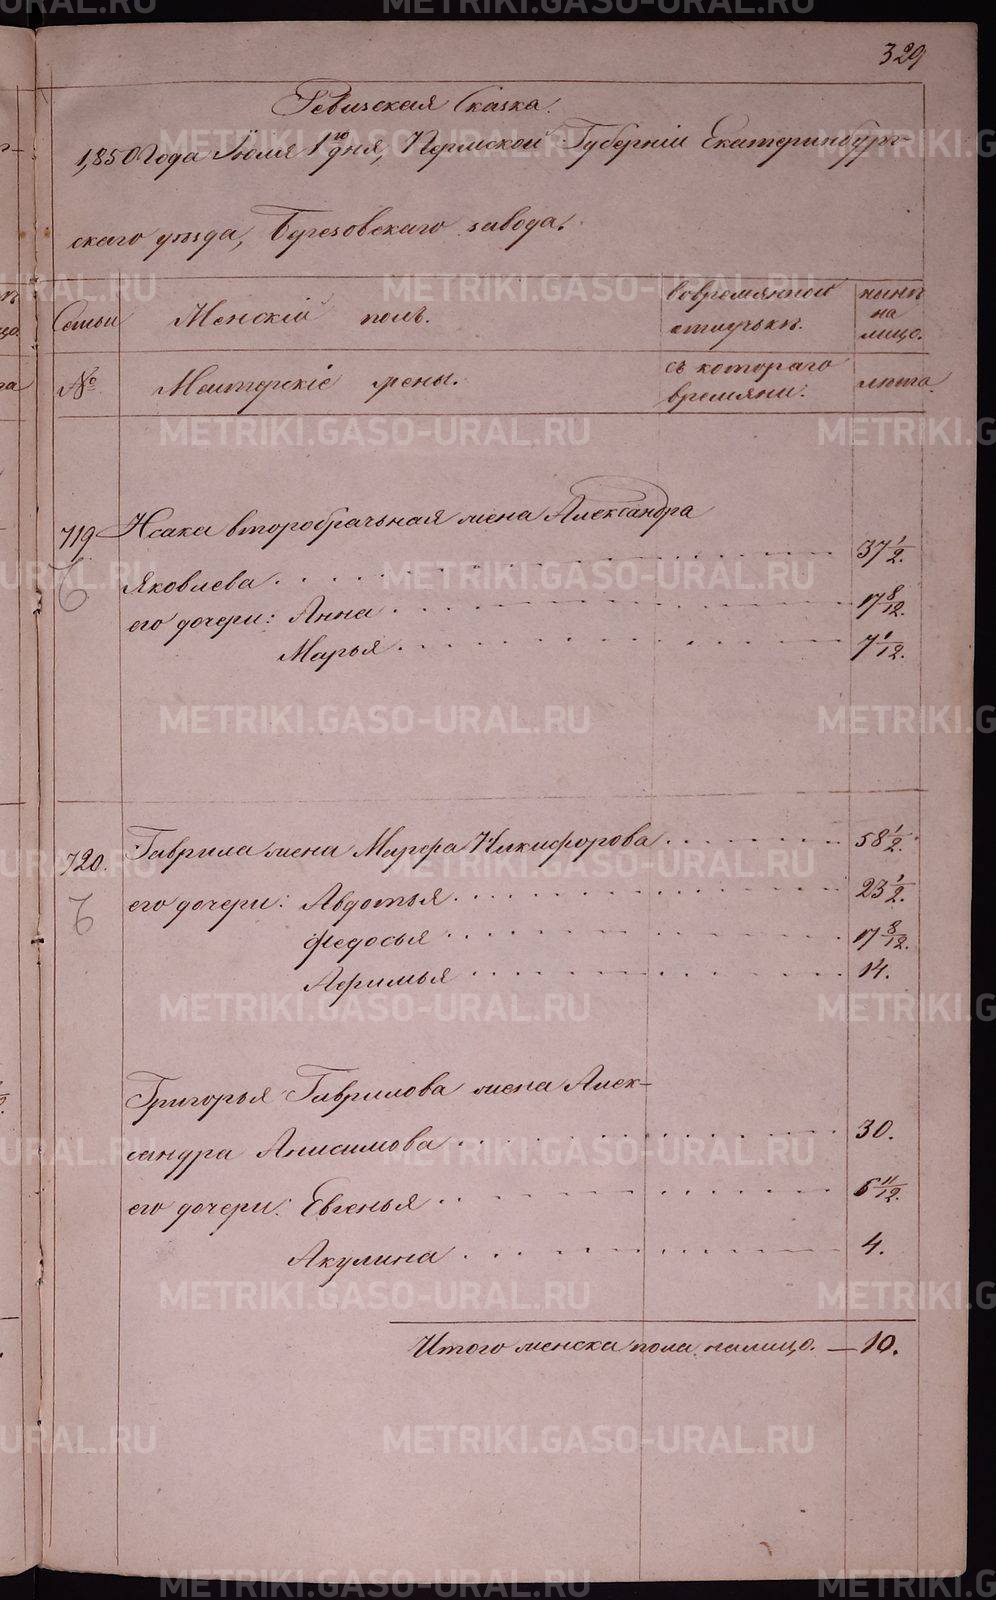 329
Ревизская Сказка.
1850 Года Июля 1го дня, Пермской Губернiи Екатеринбург-
скаго уѣзда, Березовскаго завода.
Семьи Женскiй полъ. вовремянной отлучкѣ. нынѣ на лицо.
№ Мастерскiе жены. съ котораго времяни. лѣта.
719 Исака второбрачьная жена Александра
Яковлева 37 1/2.
его дочери: Анна 17 8/12.
Марья 7 1/12.
720. Гаврила жена Марфа Никифорова 58 1/2.
его дочери: Авдотья 23 1/2.
Федосья 17 8/12.
Афимья 14.
Григорья Гаврилова жена Алек-
сандра Анисимова 30.
его дочери: Евгенья 6 11/12.
Акулина 4.
Итого женска пола налицо. — 10.
METRIKI.GASO-URAL.RU